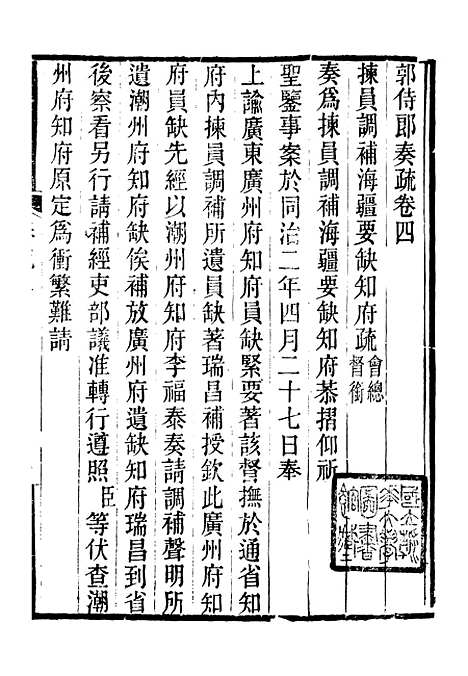 郭侍郎奏疏卷四
揀員調補海疆要缺知府疏會總督銜
奏爲揀員調補海疆要缺知府恭摺仰祈
聖鑒事案於同治二年四月二十七日奉
上諭廣東廣州府知府員缺緊要著該督撫於通省知
府內揀員調補所遺員缺著瑞昌補授欽此廣州府知
府員缺先經以潮州府知府李福泰奏請調補聲明所
遺潮州府知府缺俟補放廣州府遺缺知府瑞昌到省
後察看另行請補經吏部議准轉行遵照臣等伏查潮
州府知府原定爲衝繁難請